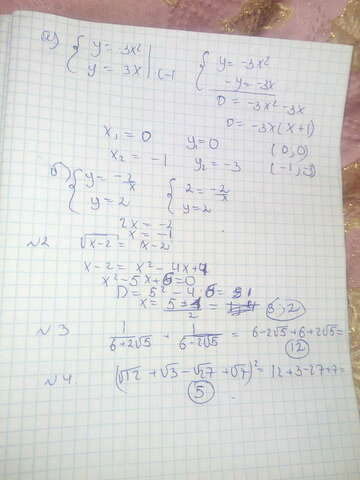 а) { y = -3x² { y = -3x²
y = 3x | (-1 -y = -3x
0 = -3x² - 3x
0 = -3x(x+1)
x₁ = 0 y₁ = 0 (0,0)
x₂ = -1 y₂ = -3 (-1,-3)
б) { y = -2/x { 2 = -2/x
y = 2 y = 2
2x = -2
x = -1
№2 √x-2 = x-2
x-2 = x² - 4x + 4
x² - 5x + 6 = 0
D = 5² - 4·6 =
x = 5 ± /2 = 3; 2
№3 1/(6+2√5) + 1/(6-2√5) = 6-2√5+6+2√5 =
12
№4. (√12 + √3 - √27 + √7)² = 12+3-27+7=
5